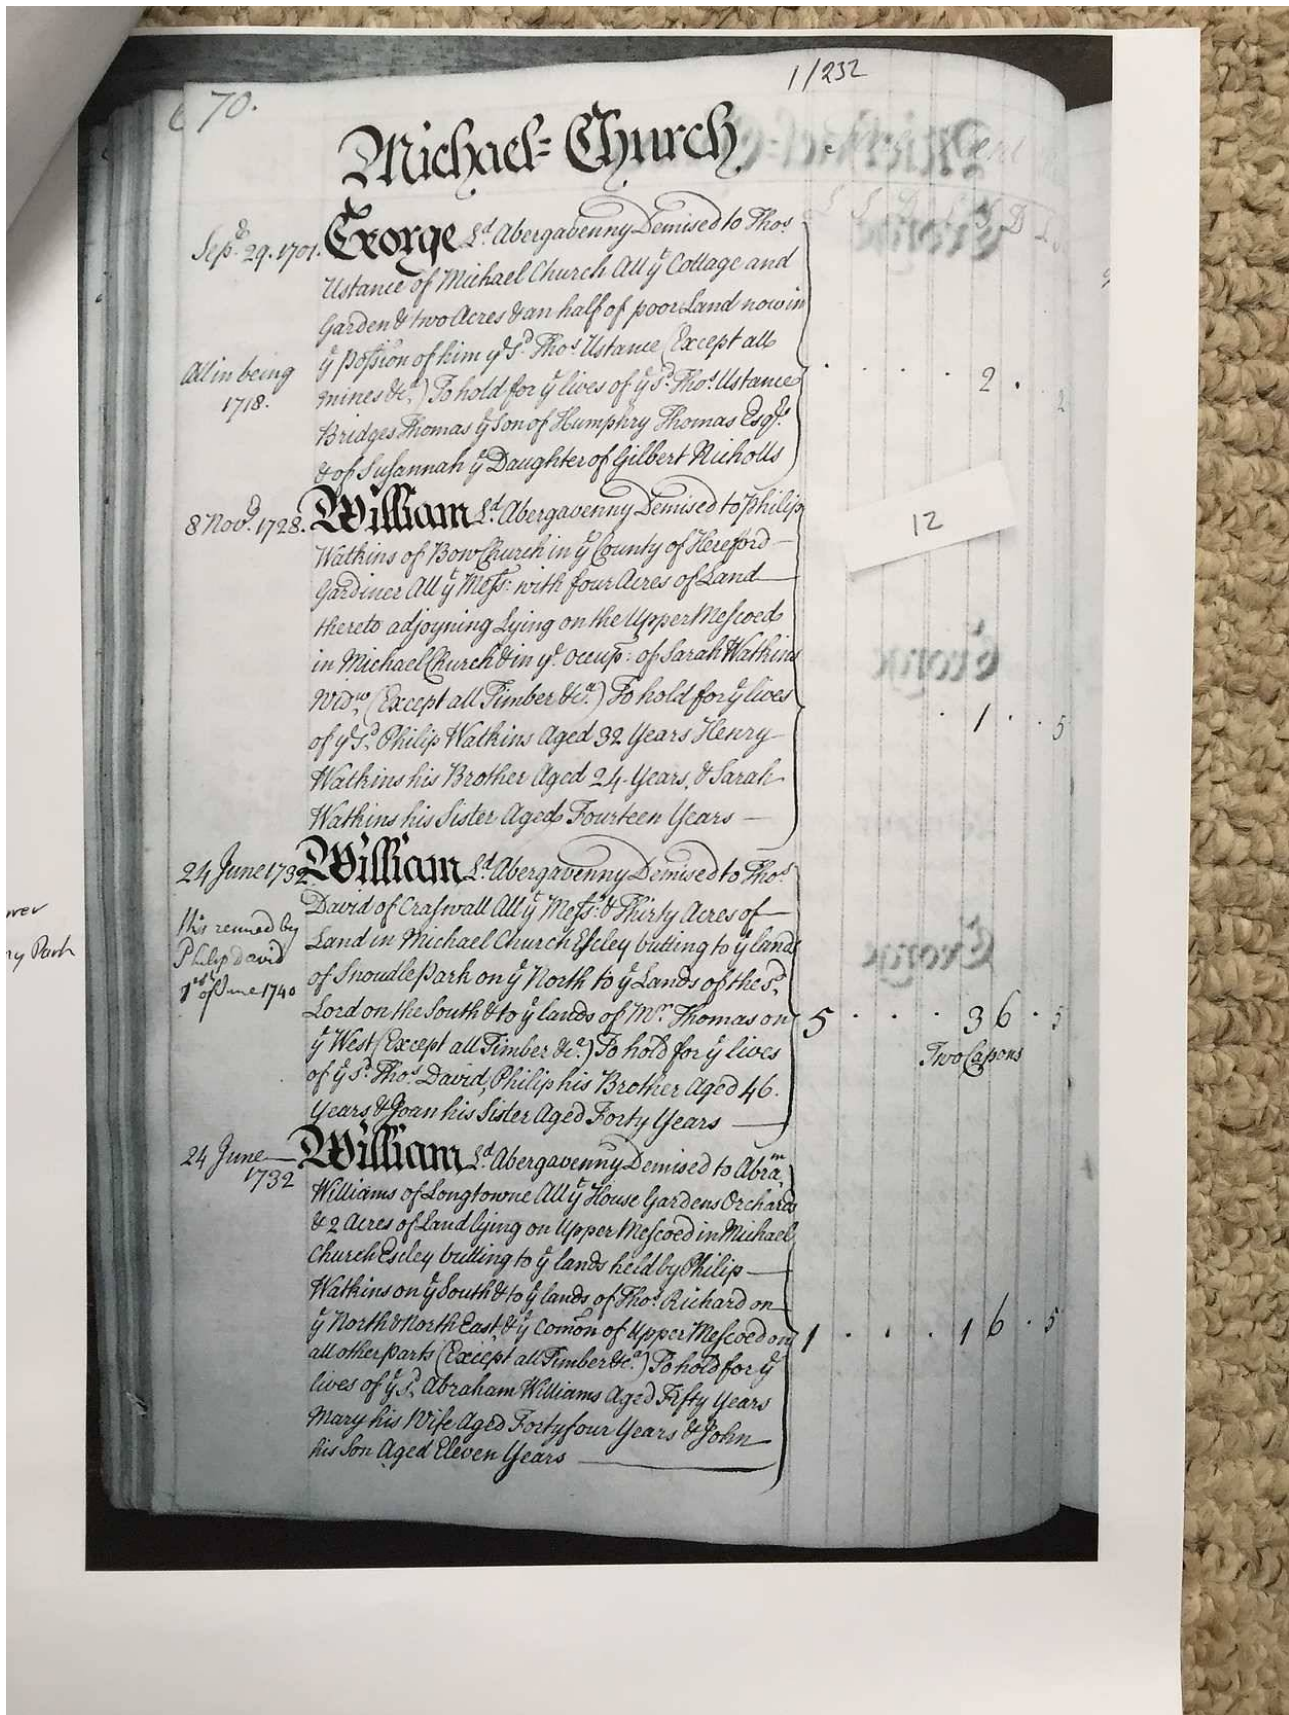 1/232
670.
Michael=Church
Sepᵈ. 29. 1701. George Lᵈ. Abergavenny Demised to Thoˢ.
Ustance of Michael Church All yᵗ Cottage and
Garden & two Acres & an half of poor Land now in
yᵉ Poſsion of him yᵉ Sᵈ. Thoˢ. Ustance (Except all
All in being
1718.
mines &cᵃ.) To hold for yᵉ lives of yᵉ Sᵈ. Thoˢ. Ustance
2 . 2
Bridges Thomas yᵉ Son of Humphry Thomas Esqʳ.
& of Susannah yᵉ Daughter of Gilbert Nicholls
8 Novᵈ. 1728. William Lᵈ. Abergavenny Demised to Philip
12
Watkins of Bow Church in yᵉ County of Hereford —
Gardiner All yᵗ Meſs: with four Acres of Land —
thereto adjoyning Lying on the Upper Meſcoed
in Michael Church & in yᵉ. occup: of Sarah Watkins
Widʷ. (Except all Timber &cᵃ.) To hold for yᵉ lives
of yᵉ Sᵈ. Philip Watkins Aged 32 Years Henry —
1 . . 5
Watkins his Brother Aged 24 Years, & Sarah
Watkins his Sister Aged Fourteen Years —
24 June 1732 William Lᵈ. Abergavenny Demised to Thoˢ.
David of Craſwall All yᵗ Meſsᵉ: & Thirty Acres of —
This renued by
Philip David
1ˢᵗ of June 1740
Land in Michael Church Eſcley butting to yᵉ lands
of Snoudle Park on yᵉ North to yᵉ Lands of the sᵈ.
Lord on the South & to yᵉ lands of Mʳ. Thomas on
5 . . . 36 . 5
Two Capons
yᵉ West (Except all Timber &cᵃ.) To hold for yᵉ lives
of yᵉ Sᵈ. Thoˢ. David, Philip his Brother Aged 46.
Years & Joan his Sister Aged Forty Years —
24 June —
1732
William Lᵈ. Abergavenny Demised to Abraᵐ.
Williams of Longtowne All yᵗ House Gardens Orchards
& 2 Acres of Land lying on Upper Meſcoed in Michael
Church Escley butting to yᵉ lands held by Philip —
Watkins on yᵉ South & to yᵉ lands of Thoˢ. Richard on —
yᵉ North & North East, & yᵉ Comon of Upper Meſcoed on
1 . . . 16 . 5
all other parts (Except all Timber &cᵃ.) To hold for yᵉ
lives of yᵉ Sᵈ. Abraham Williams Aged Fifty Years
Mary his Wife Aged Forty four Years & John —
his Son Aged Eleven Years —
Park